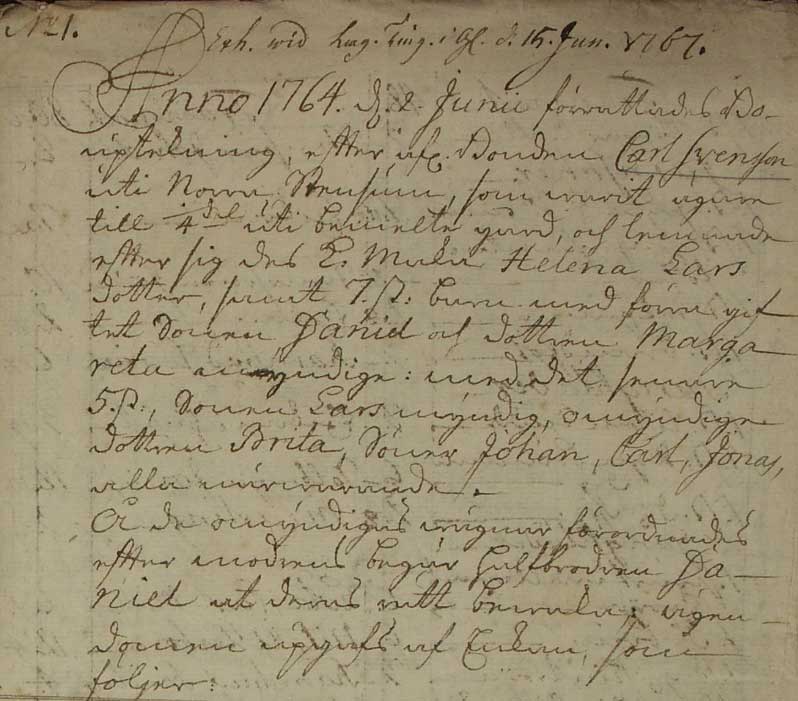 No 1.
Exh. wid Lag. Ting. i d. 15. Jun. 1767.
Anno 1764. d. 2. Junii förrättades Bo-
uptekning, efter afl. Bonden Carl Svensson
uti Norra Stensum, som warit ägare
till 1/4 del uti bemelte gård, och lemnade
efter sig des E. Maka Helena Lars
dotter, samt 7. st: barn med förra gif
tet Sonen Daniel och dottren Marga
reta myndige: med det senare
5. st:, Sonen Lars myndig, omyndige
dottren Brita, Söner Johan, Carl, Jonas,
alla närwarande.
Å de omyndigas wägnar förordnades
efter modrens begär halfbrodren Da-
niel at deras rätt bewaka; egen-
domen upgafs af Enkan, som
följer: